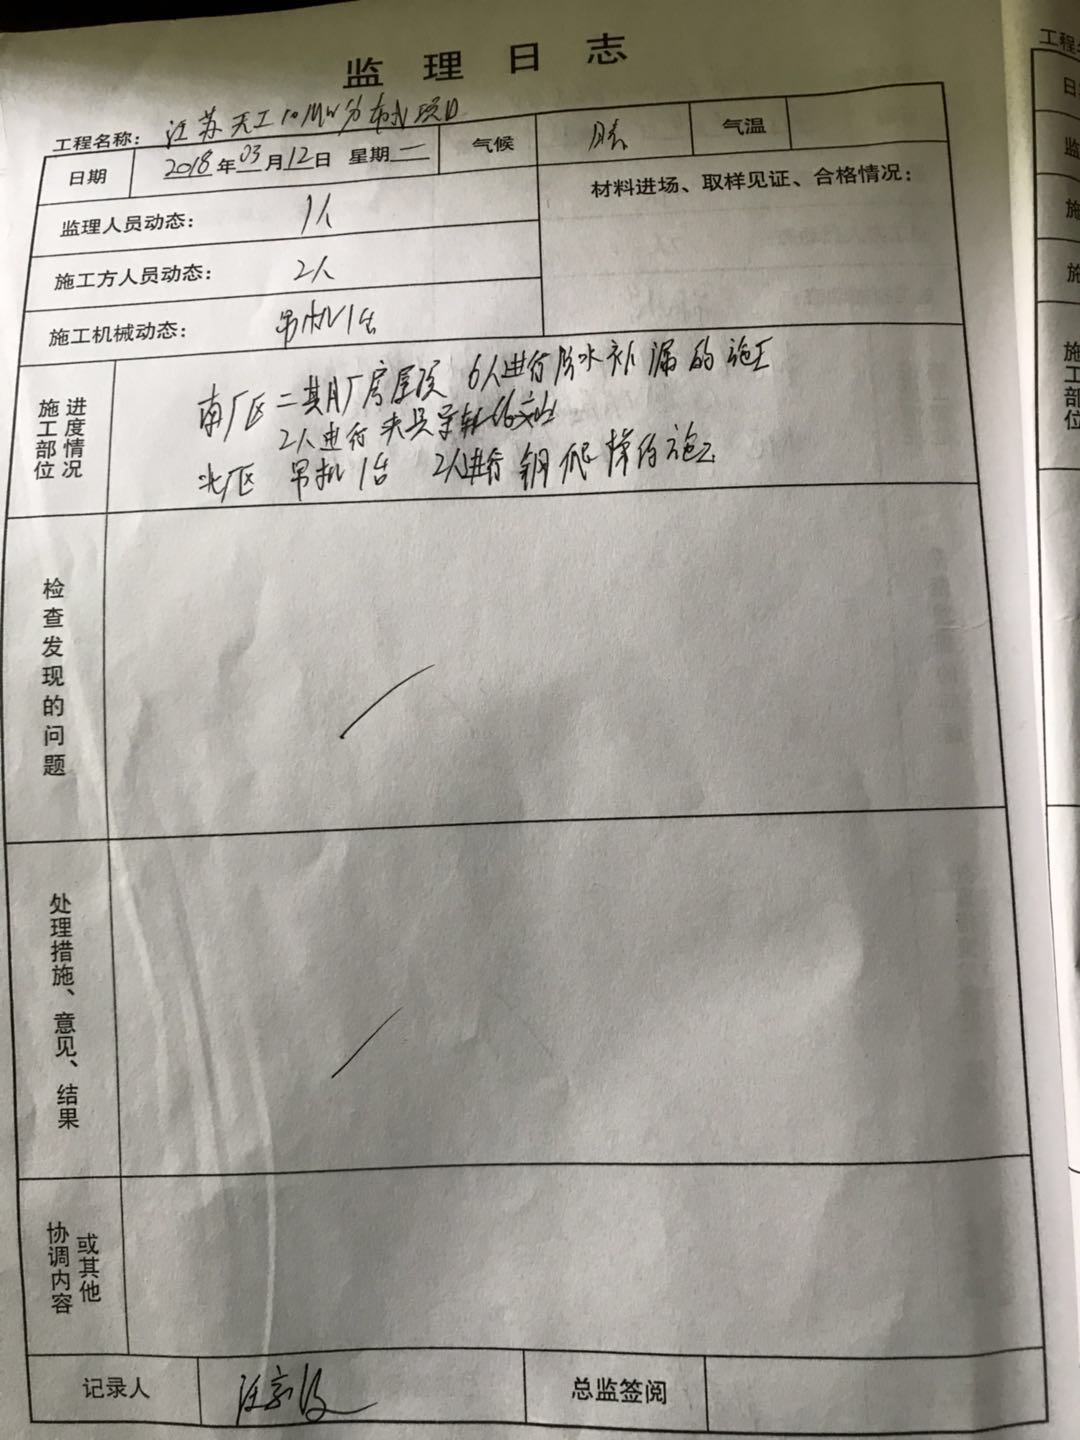 监理日志
工程名称：江苏天工10MW分布式项目
日期 2018年03月12日 星期一 气候 晴 气温
监理人员动态： 1人
材料进场、取样见证、合格情况：
施工方人员动态： 2人
施工机械动态： 吊机1台
施工部位 进度情况
南厂区二期厂房屋顶 6人进行防水补漏的施工
2人进行夹具导轨的安装
北厂区 吊机1台 2人进行钢爬梯的施工
检查发现的问题
处理措施、意见、结果
协调内容 或其他
记录人
总监签阅
工程
日
监
施
施
施工部位